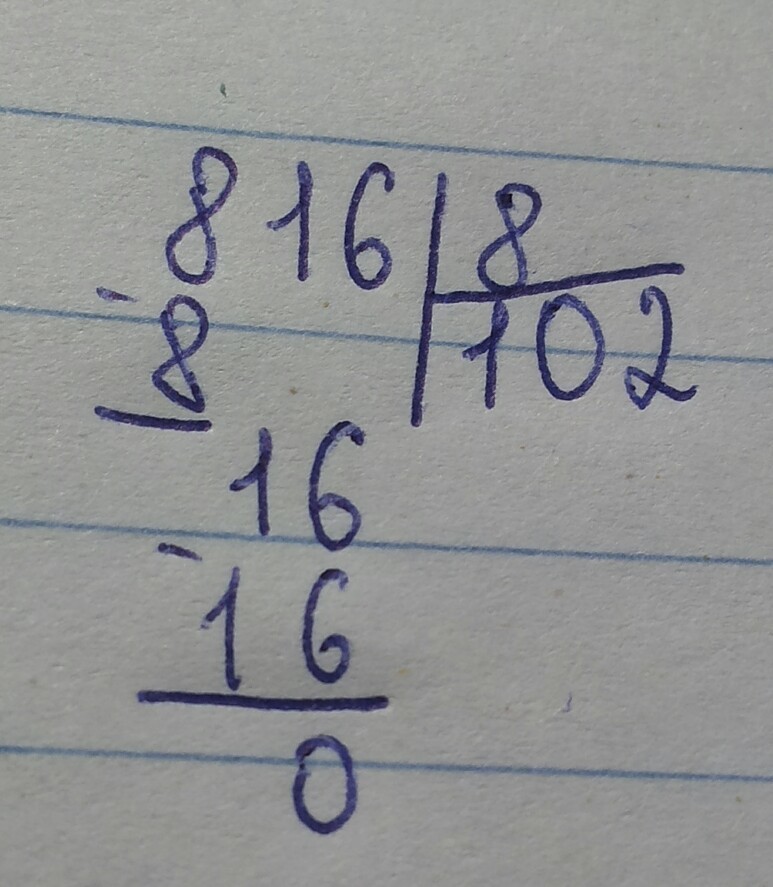 816|8
-8 |102
16
-16
0